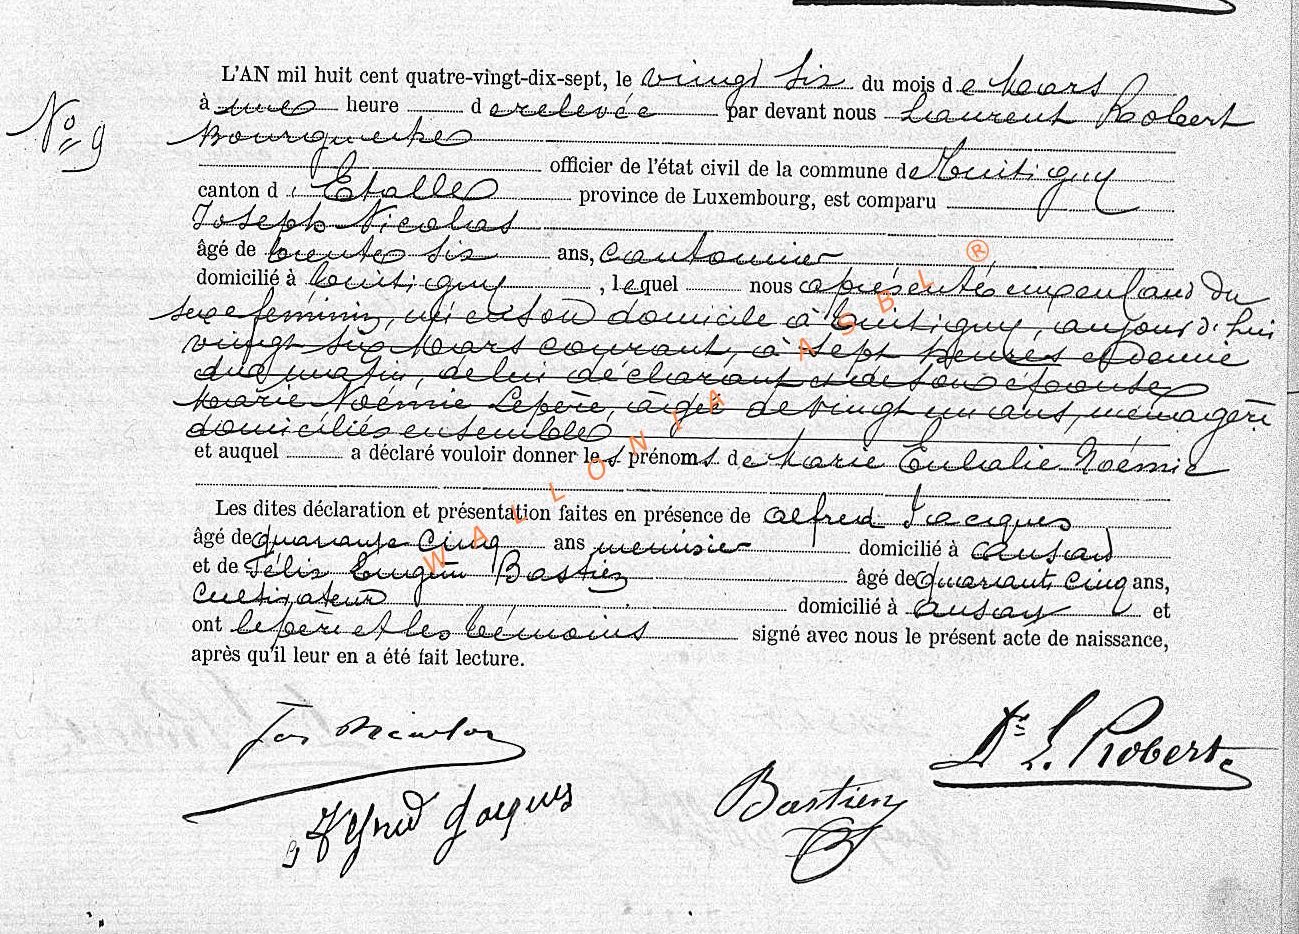 L'AN mil huit cent quatre-vingt-dix-sept, le vingt six du mois de Mars
à une heure de relevée par devant nous Laurent Robert
No 9
Bourgmestre
officier de l'état civil de la commune de
canton d' Etalle province de Luxembourg, est comparu
Joseph Nicolas
âgé de trente six ans, cantonnier
domicilié à , lequel nous a présenté un enfant du
sexe féminin, né en son domicile à , aujourd'hui
vingt six Mars courant, à sept heures et demie
du matin, de lui déclarant et de son épouse
Marie Noémie Lepère, âgée de vingt un ans, ménagère
domiciliés ensemble
et auquel a déclaré vouloir donner les prénoms de Marie Eulalie Noémie
Les dites déclaration et présentation faites en présence de Alfred Jacques
âgé de quarante cinq ans menuisier domicilié à
et de Félix Bastien âgé de quarante cinq ans,
Cultivateur domicilié à et
ont le père et les témoins signé avec nous le présent acte de naissance,
après qu'il leur en a été fait lecture.
Jos Nicolas
Dr L. Robert
Alfred Jacques
Bastien
WALLONIA ASBL ®